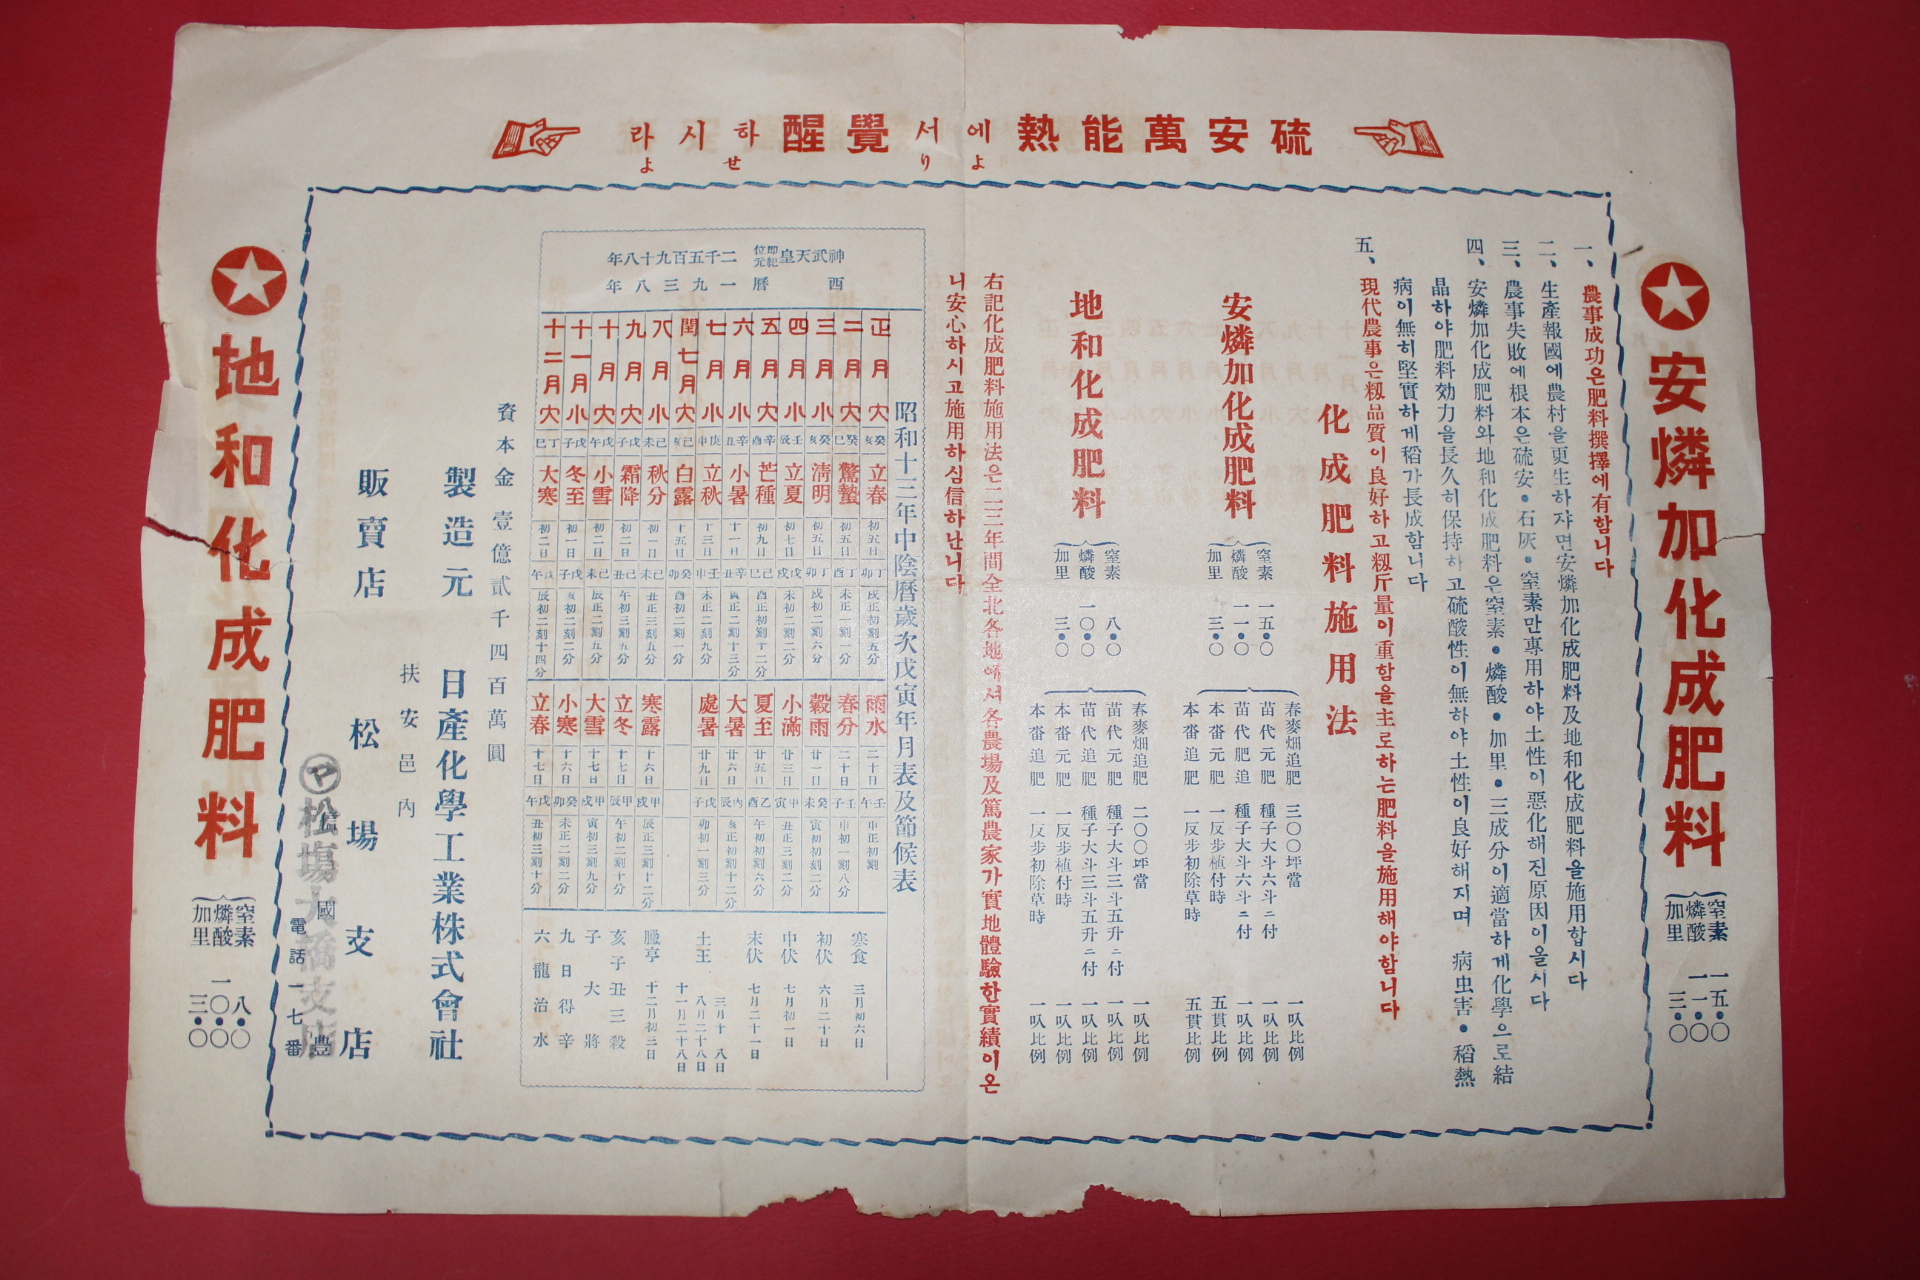 硫安萬能熱에서覺醒하시라
より せよ
安燐加化成肥料
窒素 一五・〇
燐酸 一一・〇
加里 三・〇
一、農事成功은肥料撰擇에有함니다
二、生産報國에農村을更生하쟈면安燐加化成肥料及地和化成肥料을施用합시다
三、農事失敗에根本은硫安・石灰・窒素만專用하야土性이惡化해진原因이올시다
四、安燐加化成肥料와地和化成肥料은窒素・燐酸・加里・三成分이適當하게化學으로結
晶하야肥料効力을長久히保持하고硫酸性이無하야土性이良好해지며 病虫害・稻熱
病이無히堅實하게稻가長成함니다
五、現代農事은籾品質이良好하고籾斤量이重함을主로하는肥料을施用해야함니다
化成肥料施用法
安燐加化成肥料
窒素 一五・〇
燐酸 一一・〇
加里 三・〇
春麥畑追肥 三〇〇坪當 一叺比例
苗代元肥 種子大斗六斗ニ付 一叺比例
苗代肥追 種子大斗六斗ニ付 一叺比例
本畓元肥 一反步植付時 五貫比例
本畓追肥 一反步初除草時 五貫比例
地和化成肥料
窒素 八・〇
燐酸 一〇・〇
加里 三・〇
春麥畑追肥 二〇〇坪當 一叺比例
苗代元肥 種子大斗三斗五升ニ付 一叺比例
苗代追肥 種子大斗三斗五升ニ付 一叺比例
本畓元肥 一反步植付時 一叺比例
本畓追肥 一反步初除草時 一叺比例
右記化成肥料施用法은二三年間全北各地에서各農場及篤農家가實地體驗한實績이온
니安心하시고施用하심信하난니다
昭和十三年中陰曆歲次戊寅年月表及節候表
神武天皇即位紀元二千五百九十八年
西曆一九三八年
正月大 癸亥 立春 初五日 丁卯 戌正初刻五分 雨水 二十日 壬午 申正初刻
二月大 癸巳 驚蟄 初五日 丁酉 未正一刻一分 春分 二十日 壬子 申初一刻八分
三月小 癸亥 淸明 初五日 丁卯 戌初二刻六分 穀雨 廿一日 癸未 寅初初刻二分
四月小 壬辰 立夏 初七日 戊戌 未初二刻二分 小滿 廿三日 甲寅 丑正三刻二分
五月大 辛酉 芒種 初九日 己巳 酉正初刻十二分 夏至 廿五日 乙酉 午初初刻六分
六月小 辛丑 小暑 十一日 辛丑 寅正二刻十三分 大暑 廿六日 丙辰 亥正初刻十二分
七月小 庚申 立秋 十三日 壬申 未正二刻九分 處暑 廿九日 戊子 卯初一刻三分
閏七月大 己亥 白露 十五日 癸卯 酉初二刻一分
八月小 己未 秋分 初一日 己未 丑正三刻五分 寒露 十六日 甲戌 辰正三刻十二分
九月大 戊子 霜降 初二日 己丑 午初三刻五分 立冬 十七日 甲辰 午初二刻十分
十月大 戊午 小雪 初二日 己未 辰正二刻五分 大雪 十七日 甲戌 寅初三刻九分
十一月小 戊子 冬至 初一日 戊子 亥初二刻二分 小寒 十六日 癸卯 未正二刻二分
十二月大 丁巳 大寒 初二日 戊午 辰初二刻十四分 立春 十七日 戊午 丑初三刻十分
寒食 三月初六日
初伏 六月二十日
中伏 七月初一日
末伏 七月二十一日
土王 三月十八日
八月二十八日
十一月二十八日
臘亨 十二月初三日
亥子丑三殺
子大將
九日得辛
六龍治水
資本金壹億貳千四百萬圓
製造元 日産化學工業株式會社
扶安邑內
販賣店 松場支店
國豊
電話一七番
㋮松場大橋支店
地和化成肥料
窒素 八・〇
燐酸 一〇・〇
加里 三・〇